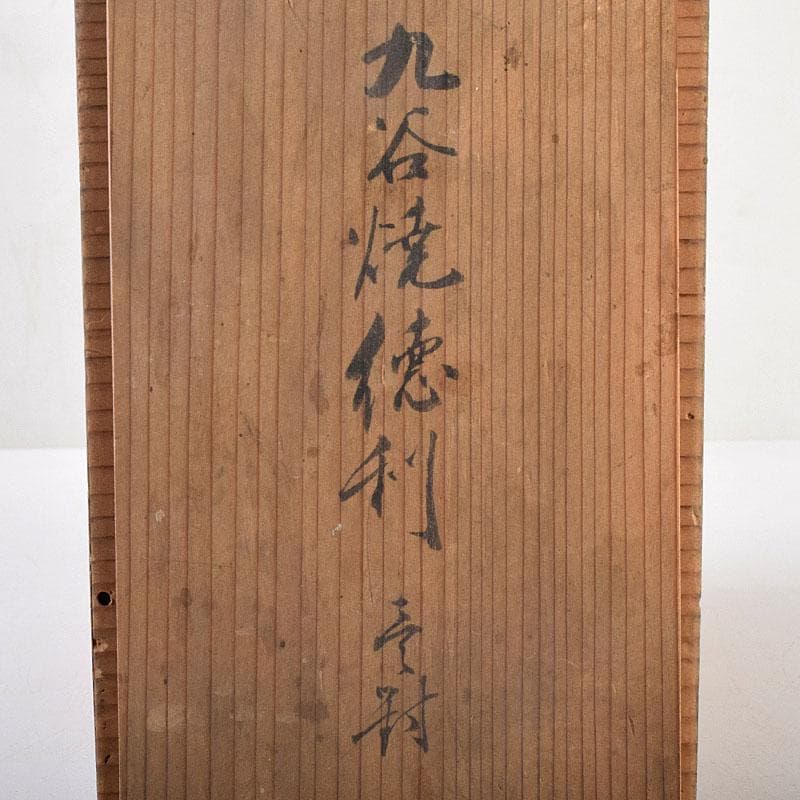 九谷焼徳利 壱対